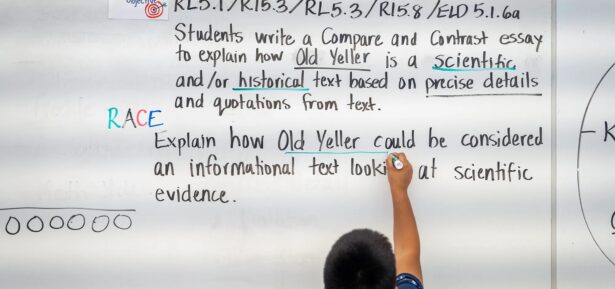 Objective
RL5.1/RI5.3/RL5.3/RI5.8/ELD 5.1.6a
Students write a Compare and Contrast essay
to explain how Old Yeller is a scientific
and/or historical text based on precise details
and quotations from text.
RACE
Explain how Old Yeller could be considered
an informational text at scientific
evidence.